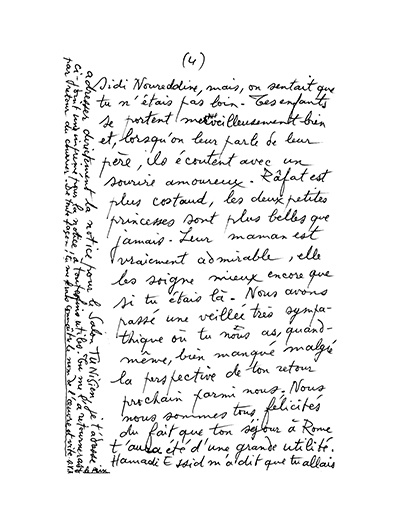 (4)
Sidi Noureddine, mais, on sentait que
tu n'étais pas loin - Tes enfants
se portent merveilleusement bien
et, lorsqu'on leur parle de leur
père, ils écoutent avec un
sourire amoureux. Râfat est
plus costaud, les deux petites
princesses sont plus belles que
jamais. Leur maman est
vraiment admirable, elle
les soigne mieux encore que
si tu étais là - Nous avons
passé une veillée très sympa-
thique où tu nous as, quand-
même, bien manqué malgré
la perspective de ton retour
prochain parmi nous. Nous
nous sommes tous félicités
du fait que ton séjour à Rome
t'aura été d'une grande utilité.
Hamadi Essid m'a dit que tu allais
adresser directement la notice pour le Salon TUNISIEN, je t'adresse
ci-joint un imprimé pour la notice, à toutes fins utiles. Tu me la retourneras
par retour du courrier. De toute façon,